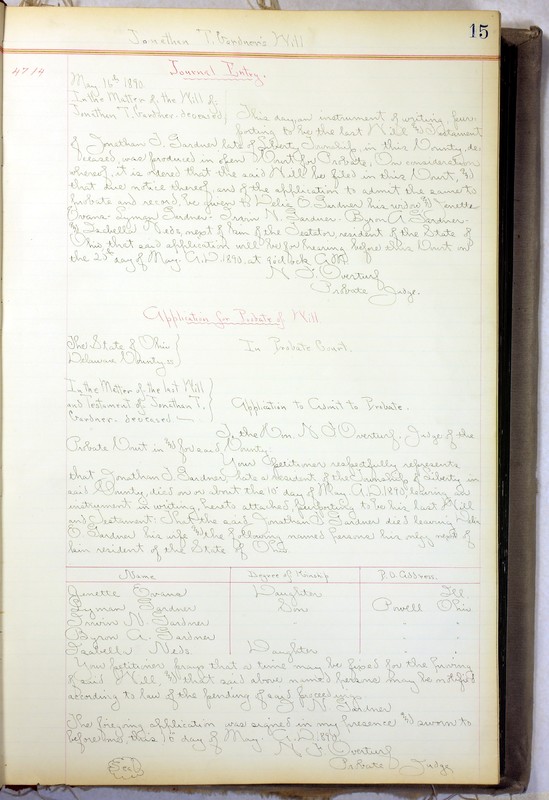 15
Jonathan T. Gardner's Will
4714
Journal Entry.
May 16th 1890.
In the Matter of the Will of
Jonathan T. Gardner deceased
This day an instrument of writing, pur-
porting to be the last Will & Testament
of Jonathan T. Gardner late of Liberty Township, in this County, de-
ceased, was produced in open Court for Probate, On consideration
whereof, it is ordered that the said Will be filed in this Court, &
that due notice thereof, and of the application to admit the same to
probate and record, be given to Delia O. Gardner his widow &
Evans. Lyman Gardner. Irwin N. Gardner. Byron A. Gardner.
& Isabella Neds, next of kin of the Testator, resident of the State of
Ohio, that said application will be for hearing before this Court on
the day of May A.D. 1890, at 9 o'clock A.M.
N. F. Overturf
Probate Judge.
Application for Probate of Will
The State of Ohio
Delaware County ss
In Probate Court.
In the Matter of the last Will
and Testament of Jonathan T.
Gardner, deceased
Application to Admit to Probate.
To the Hon. N. F. Overturf. Judge of the
Probate Court in & for said County.
Your Petitioner respectfully represents
that Jonathan T. Gardner, late a resident of the Township of Liberty in
said County, died on or about the 10" day of May A.D. 1890, leaving an
instrument in writing, hereto attached, purporting to be his last Will
and Testament. That the said Jonathan T. Gardner died leaving
O. Gardner his wife & the following named persons his next of
kin resident of the State of Ohio.
Name Degree of Kinship P.O. Address.
Jenette Evans Daughter Ill.
Lyman Gardner Son Powell Ohio
Irwin N. Gardner " " "
Byron A. Gardner " " "
Isabella Neds. Daughter " "
Your petitioner prays that a time may be fixed for the proving
of said Will, & that said above named persons may be notified
according to law of the pending of said proceedings.
I. N. Gardner
The foregoing application was signed in my presence & sworn to
before me, this 16" day of May. A.D. 1890.
N. F. Overturf
Seal
Probate Judge